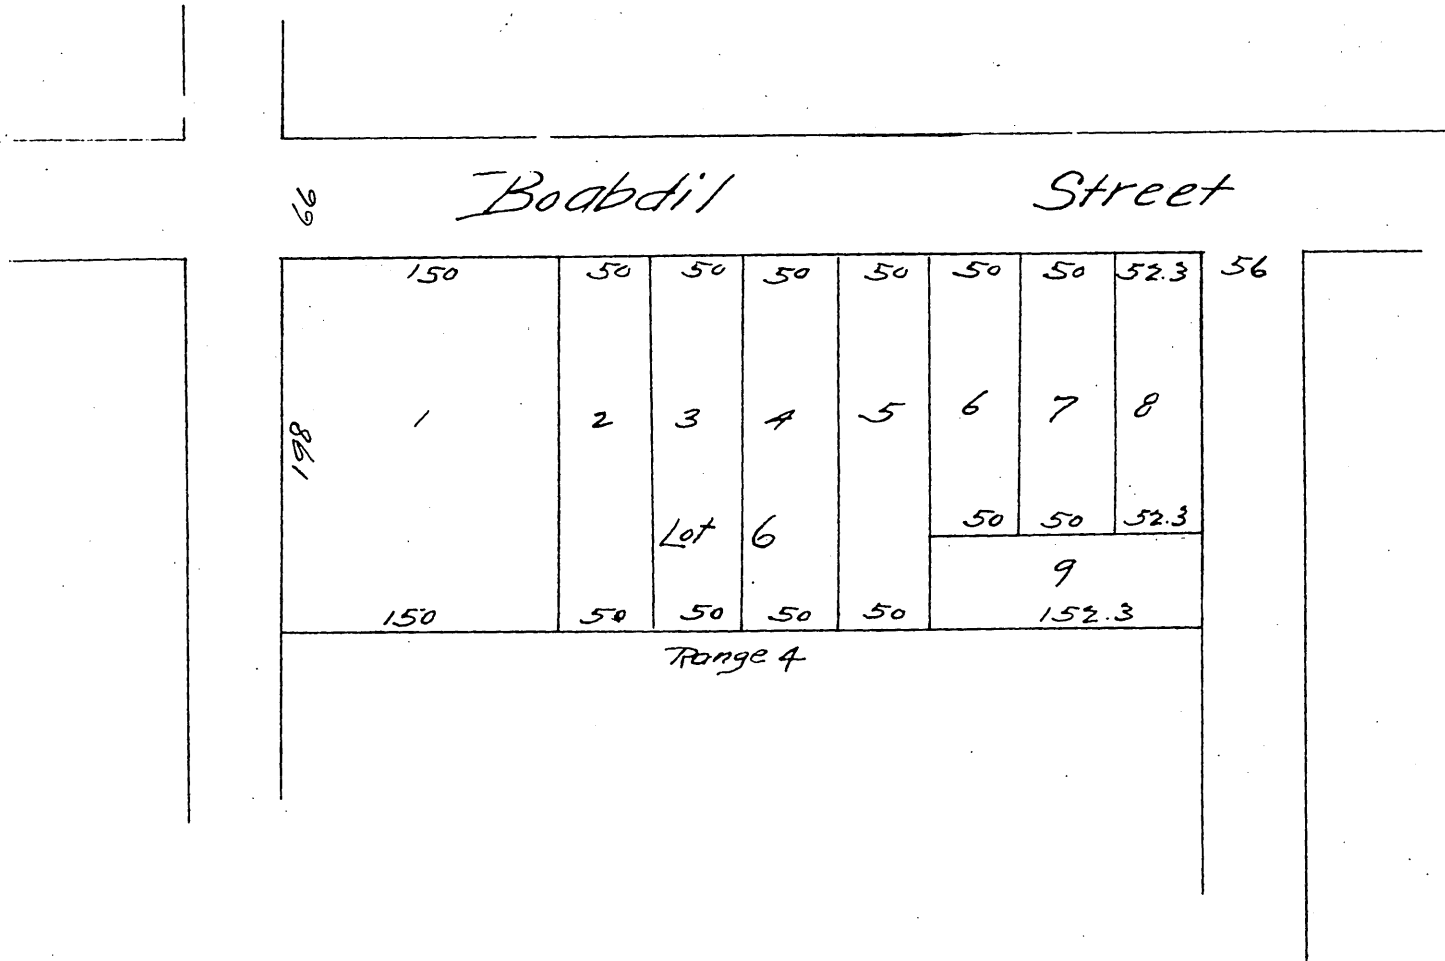 66
Boabdil Street
150 50 50 50 50 50 50 52.3 56
198
1 2 3 4 5 6 7 8
50 50 52.3
Lot 6
9
150 50 50 50 50 152.3
Range 4